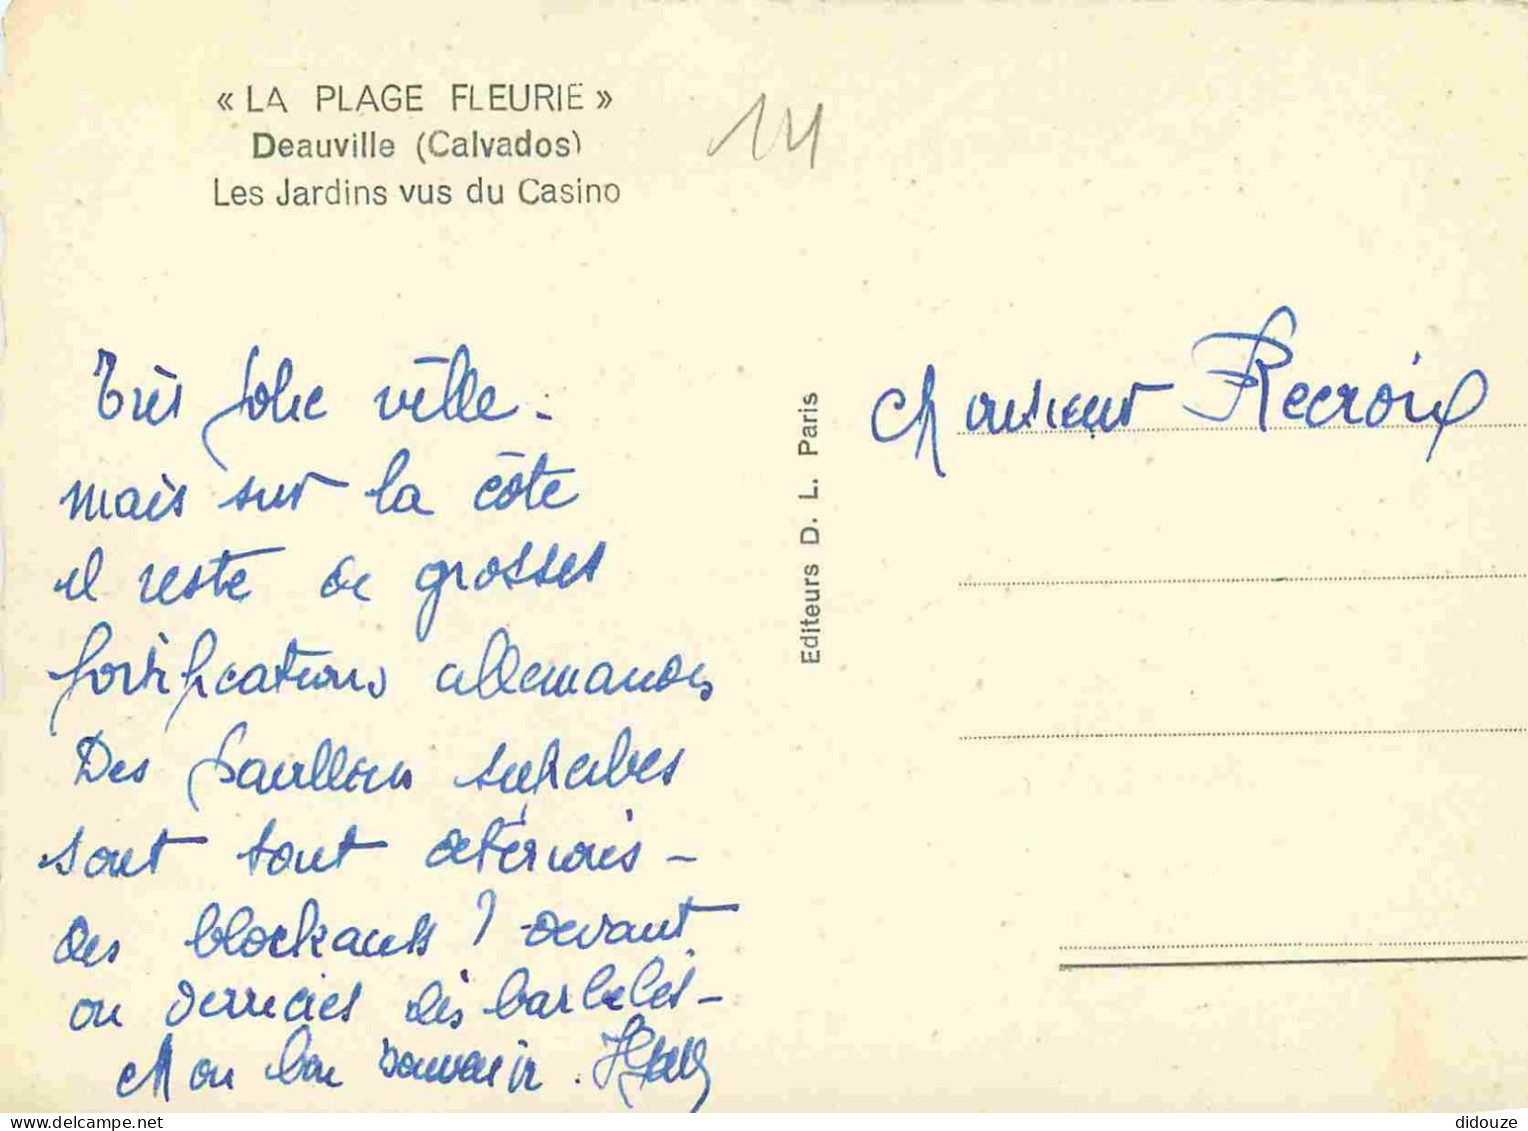 « LA PLAGE FLEURIE »
Deauville (Calvados)
Les Jardins vus du Casino
14
Très jolie ville -
mais sur la côte
il reste de grosses
fortifications allemandes
Des pavillons superbes
sont tout détériorés -
des blockauss ? devant
ou derrières des barbelés -
Mon bon souvenir.
Monsieur Recroix
Editeurs D. L. Paris
didouze